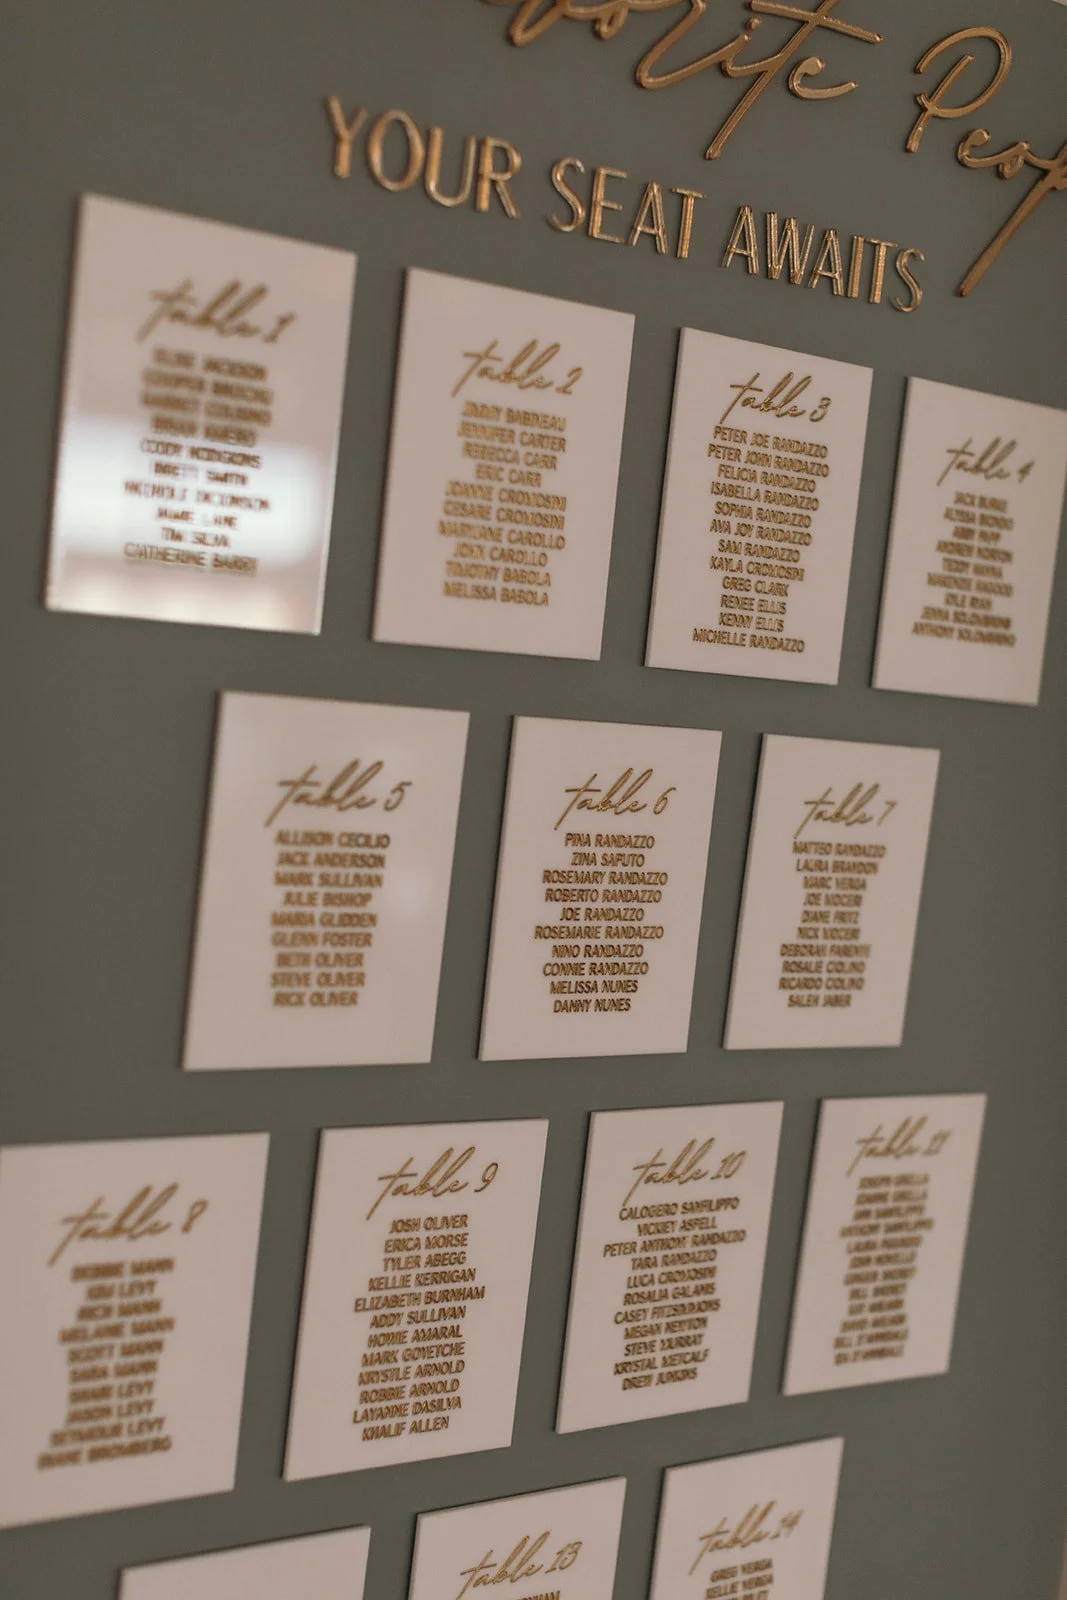 YOUR SEAT AWAITS
table 1
BRETT SMITH
JAMIE LANE
TIM SILVA
CATHERINE BARRY
table 2
JIMMY BABINEAU
JENNIFER CARTER
REBECCA CARR
ERIC CARR
JOANNE CROMOSINI
CESARE CROMOSINI
MARYJANE CAROLLO
JOHN CAROLLO
TIMOTHY BABOLA
MELISSA BABOLA
table 3
PETER JOE RANDAZZO
PETER JOHN RANDAZZO
FELICIA RANDAZZO
ISABELLA RANDAZZO
SOPHIA RANDAZZO
AVA JOY RANDAZZO
SAM RANDAZZO
KAYLA CROMOSINI
GREG CLARK
RENEE ELLIS
KENNY ELLIS
MICHELLE RANDAZZO
table 4
JACK BURKE
ALYSSA BIONDO
ABBY PUPP
ANDREW NORTON
TEDDY HANNA
KYLE RYAN
JENNA SOLOMBRINO
ANTHONY SOLOMBRINO
table 5
ALLISON CECILIO
JACK ANDERSON
MARK SULLIVAN
JULIE BISHOP
MARIA GLIDDEN
GLENN FOSTER
BETH OLIVER
STEVE OLIVER
RICK OLIVER
table 6
PINA RANDAZZO
ZINA SAPUTO
ROSEMARY RANDAZZO
ROBERTO RANDAZZO
JOE RANDAZZO
ROSEMARIE RANDAZZO
NINO RANDAZZO
CONNIE RANDAZZO
MELISSA NUNES
DANNY NUNES
table 7
MATTEO RANDAZZO
LAURA BRANDON
MARC VERGA
JOE MOCERI
DIANE FRITZ
NICK MOCERI
DEBORAH PARENTE
ROSALIE CIOLINO
RICARDO CIOLINO
SALEH JABER
table 8
DEBBIE MANN
KIM LEVY
RICH MANN
MELANIE MANN
SCOTT MANN
SARA MANN
SHARI LEVY
JASON LEVY
SEYMOUR LEVY
DIANE BROMBERG
table 9
JOSH OLIVER
ERICA MORSE
TYLER ABEGG
KELLIE KERRIGAN
ELIZABETH BURNHAM
ADDY SULLIVAN
HOWIE AMARAL
MARK GOYETCHE
KRYSTLE ARNOLD
ROBBIE ARNOLD
LAYANNE DASILVA
KHALIF ALLEN
table 10
CALOGERO SANFILIPPO
VICKIEY ASPELL
PETER ANTHONY RANDAZZO
TARA RANDAZZO
LUCA CROMOSINI
ROSALIA GALANIS
CASEY FITZSIMMONS
MEGAN NEWTON
STEVE MURRAY
KRYSTAL METCALF
DREW JUNKINS
table 11
JOSEPH GRELLA
JOANNE GRELLA
ANN SANFILIPPO
ANTHONY SANFILIPPO
table 13
table 14
GREG VERGA
KELLIE VERGA